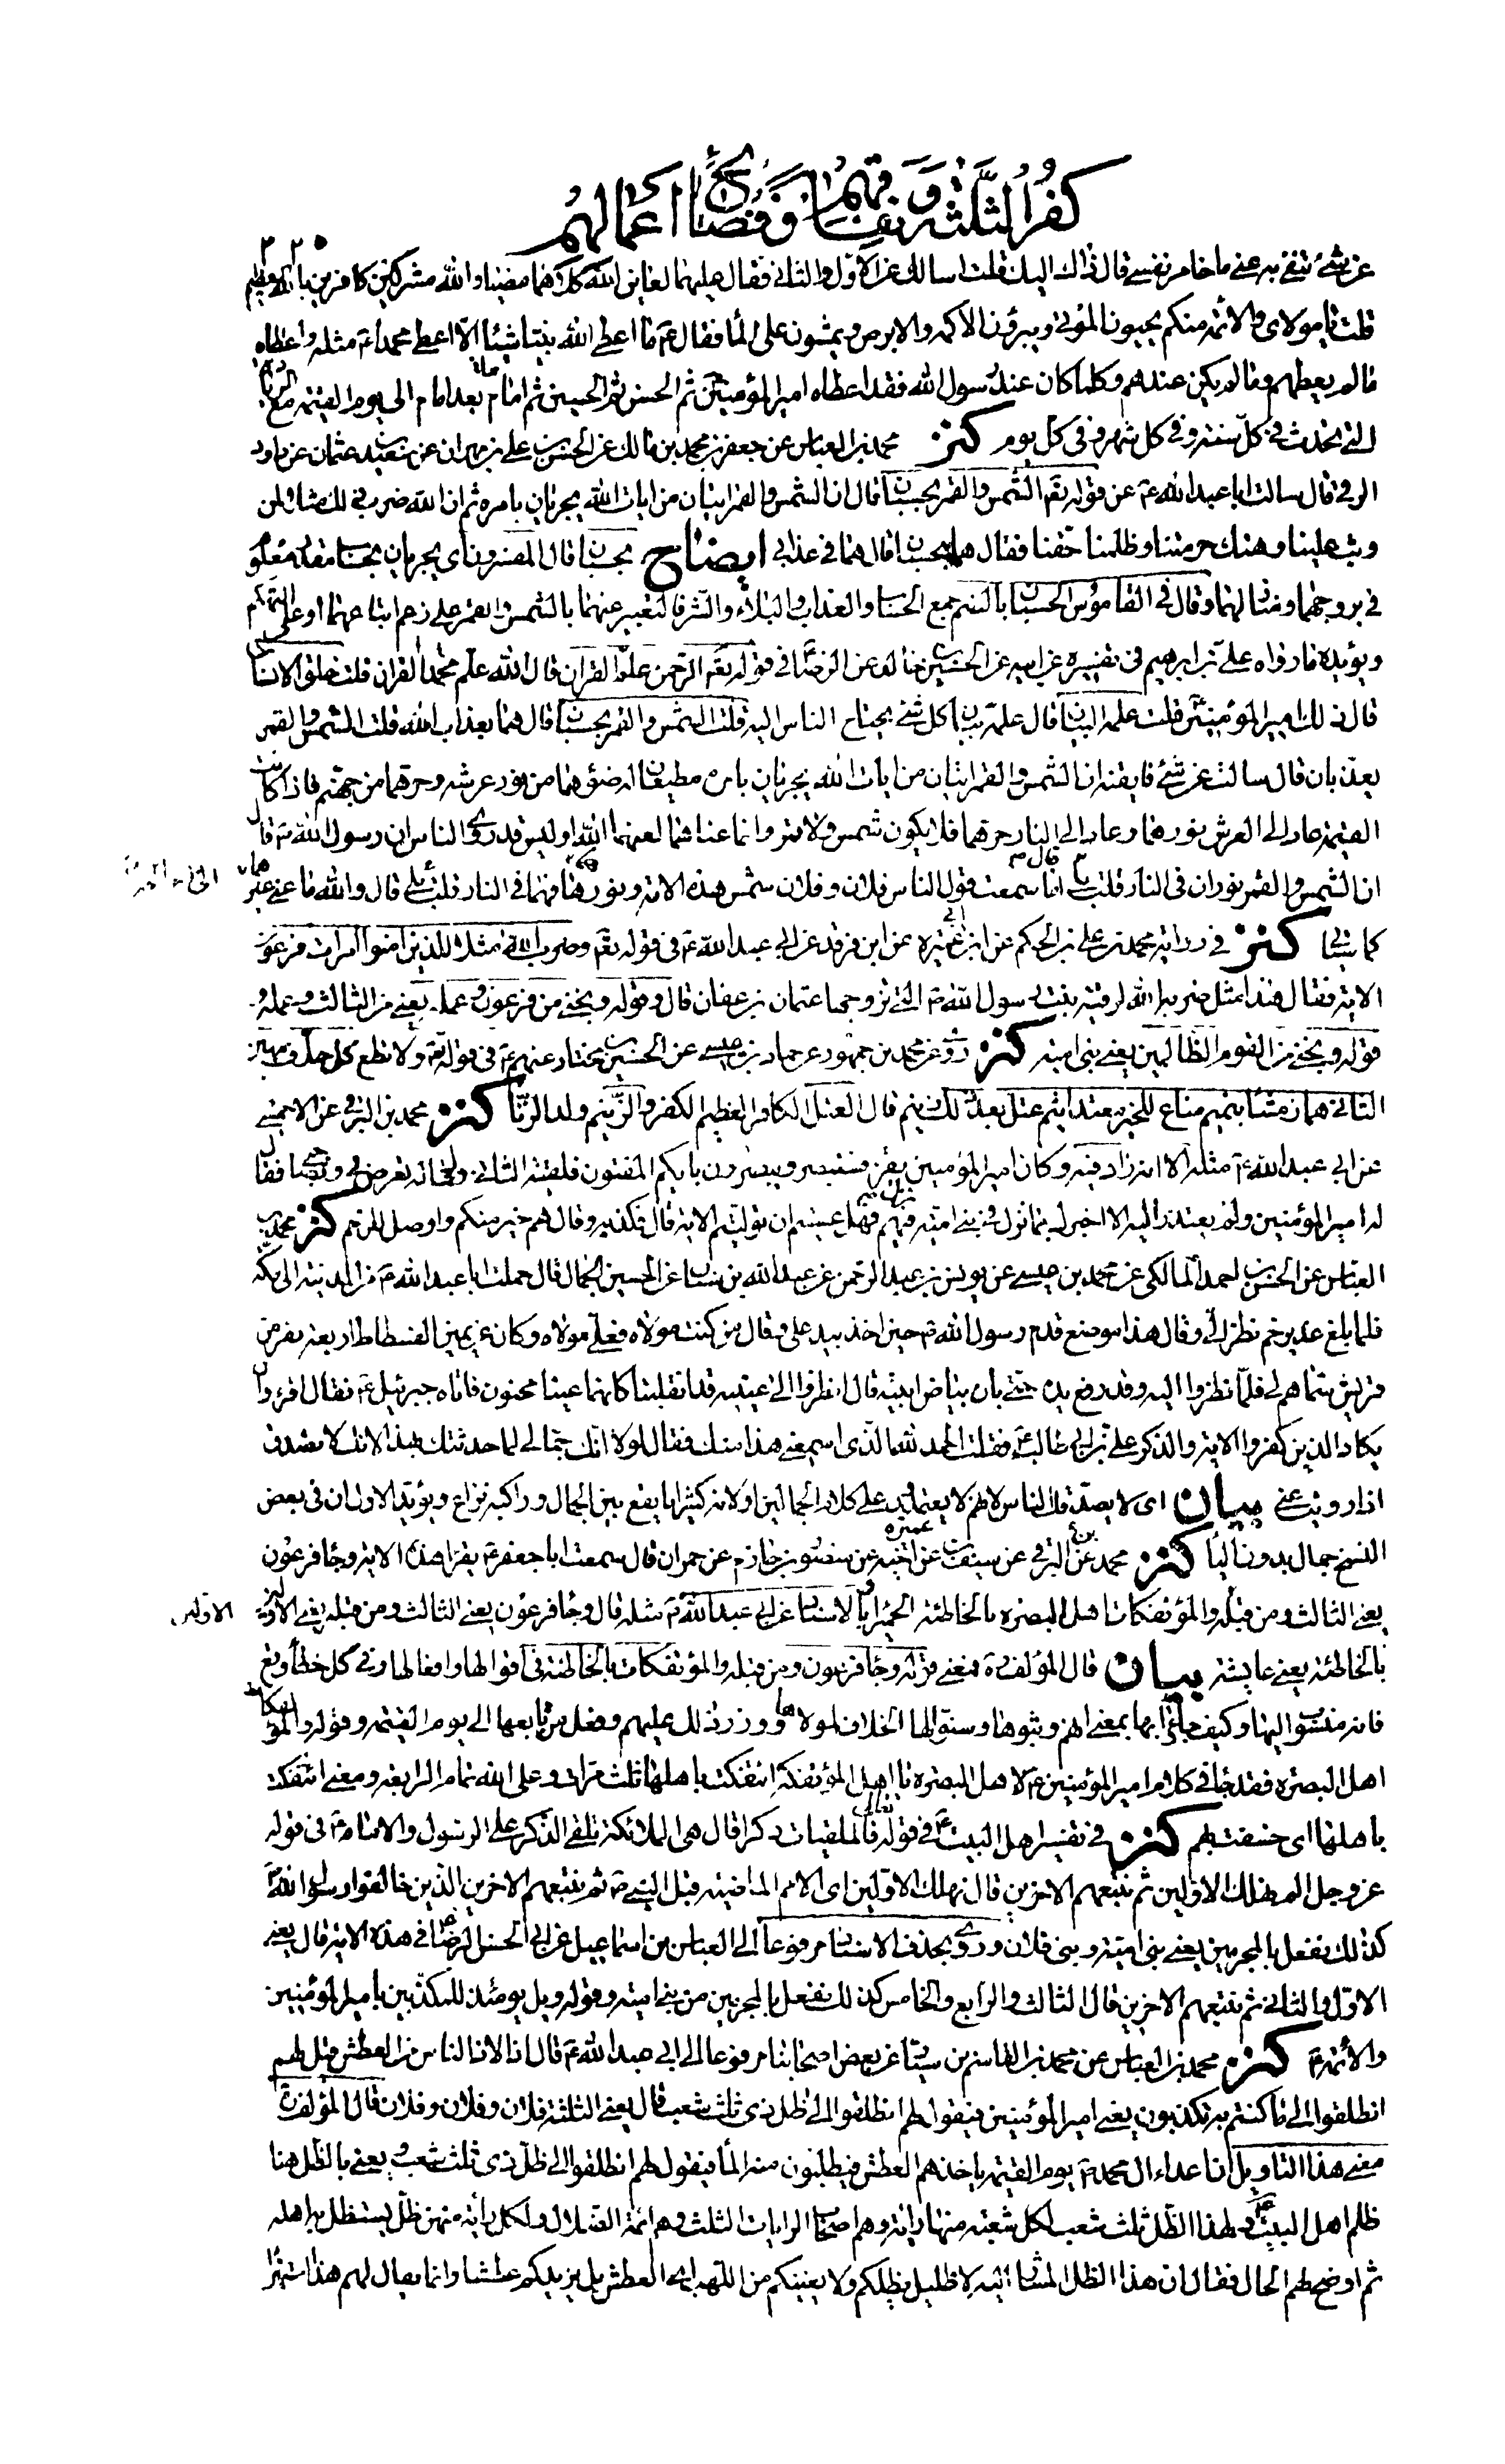 كفر الثلثة و نفاقهم و فضائح أعمالهم
٢٢٥
عن شئ تنفى به عنى ما خامر نفسى قال ذلك اليك قلت اسالك عن الاول والثانى فقال عليهما لعاين الله كلاهما مضيا والله مشركين كافرين بالله العظيم
قلت يا مولاى والائمة منكم يحيون الموتى ويبرؤن الاكمه والابرص ويمشون على الماء فقال ع ما اعطى الله نبيا شيئا الا اعطى محمدا ص مثله واعطاه
ما لم يعطهم وما لم يكن عندهم وكلما كان عند رسول الله فقد اعطاه امير المؤمنين ثم الحسن ثم الحسين ثم اماما بعد امام الى يوم القيمة مع الزيادة
التى تحدث فى كل سنة وفى كل شهر وفى كل يوم كنز محمد بن العباس عن جعفر بن محمد بن مالك عن الحسن بن على بن مهران عن سعيد بن عثمان عن داود
الرقى قال سالت ابا عبد الله ع عن قوله تع الشمس والقمر بحسبان قال ان الشمس والقمر ايتان من ايات الله يجريان بامره ثم ان الله ضرب ذلك مثلا لمن
وثب علينا وهتك حرمتنا وظلمنا حقنا فقال هما بحسبان قال هما فى عذابى ايضاح بحسبان قال المفسرون اى يجريان بحساب مقدر معلوم
فى بروجهما ومنازلهما وقال فى القاموس الحسبان بالضم جمع الحساب والعذاب والبلاء والشر فالتعبير عنهما بالشمس والقمر على زعم اتباعهما او على التهكم
ويؤيده ما رواه على بن ابرهيم فى تفسيره عن ابيه عن الحسين بن خالد عن الرضا ع فى قوله تع الرحمن علم القران قال الله علم محمدا القران قلت خلق الانسان
قال ذلك امير المؤمنين قلت علمه البيان قال علمه بيان كل شئ يحتاج الناس اليه قلت الشمس والقمر بحسبان قال هما بعذاب الله قلت الشمس والقمر
يعذبان قال سالت عن شئ فايقنه ان الشمس والقمر ايتان من ايات الله يجريان بامره مطيعان له ضوؤهما من نور عرشه وحرهما من جهنم فاذا كانت
القيمة عاد الى العرش نورهما وعاد الى النار حرهما فلا يكون شمس ولا قمر وانما عناهما لعنهما الله اوليس قد روى الناس ان رسول الله ص قال
ان الشمس والقمر نوران فى النار قلت بلى قال اما سمعت قول الناس فلان وفلان شمس هذه الامة ونورها فهما فى النار قلت بلى قال والله ما عنى غيرهما
كما سياتى كنز فى رواية محمد بن على بن الحكم عن ابن عميرة عن ابن فرقد عن ابى عبد الله ع فى قوله تع وضرب الله مثلا للذين امنوا امرات فرعون
الاية فقال هذا مثل ضربه الله لرقية بنت رسول الله ص التى تزوجها عثمان بن عفان قال وقوله ونجنى من فرعون وعمله يعنى من الثالث وعمله و
قوله ونجنى من القوم الظالمين يعنى بنى امية كنز روى عن محمد بن جمهور عن حماد بن عيسى عن الحسين بن مختار عنهم ع فى قوله تع ولا تطع كل حلاف مهين
الثانى هماز مشاء بنميم مناع للخير معتد اثيم عتل بعد ذلك زنيم قال العتل الكافر العظيم الكفر والزنيم ولد الزنا كنز محمد بن البرقى عن الاحمسى
عن ابى عبد الله ع مثله الا انه زاد فيه وكان امير المؤمنين يقرء فستبصر ويبصرون بايكم المفتون فلقيه الثانى فقال له تعرض بى وبصاحبى فقال
له امير المؤمنين ولم يعتذر اليه الا اخبرك بما نزل فى بنى امية نزل فيهم فهل عسيتم ان توليتم الاية قال فكذبه وقال هم خير منكم واوصل للرحم كنز محمد بن
العباس عن الحسن بن احمد المالكى عن محمد بن عيسى عن يونس بن عبد الرحمن عن عبد الله بن سنان عن الحسين الجمال قال حملت ابا عبد الله ع من المدينة الى مكة
فلما بلغ غدير خم نظر الى وقال هذا موضع قدم رسول الله ص حين اخذ بيد على وقال من كنت مولاه فعلى مولاه وكان عن يمين الفسطاط اربعة نفر من
قريش سماهم لى فلما نظروا اليه وقد رفع يده حتى بان بياض ابطيه قال انظروا الى عينيه قد انقلبتا كانهما عينا مجنون فاتاه جبرئيل ع فقال اقرء وان
يكاد الذين كفروا الاية والذكر على بن ابى طالب ع فقلت الحمد لله الذى اسمعنى هذا منك فقال لولا انك جمالى لما حدثتك بهذا لانك لا تصدق
اذا رويت عنى بيان اى لا يصدقك الناس لانهم لا يعتمدون على كلام الجمالين او لانه كثيرا ما يقع بين الجمال وراكبه نزاع ويؤيد الاول ان فى بعض
النسخ جمال بدون الياء كنز محمد عن البرقى عن سيف بن عميرة عن اخيه عن منصور بن حازم عن حمران قال سمعت ابا جعفر ع يقرا هذه الاية وجاء فرعون
يعنى الثالث ومن قبله والمؤتفكات اهل البصرة بالخاطئة الحميراء وبالاسناد عن ابى عبد الله ع مثله قال وجاء فرعون يعنى الثالث ومن قبله يعنى الاولين
بالخاطئة يعنى عايشة بيان قال المؤلف ره فمعنى قوله وجاء فرعون ومن قبله والمؤتفكات بالخاطئة فى اقوالها وافعالها وفى كل خطأ وقع
فانه منسوب اليها وكيف جاؤا بها بمعنى انهم وثبوها وسنوا لها الخلاف لمولاها ووزر ذلك عليهم وفعل من تابعها الى يوم القيمة وقوله والمؤتفكات
اهل البصرة فقد جاء فى كلام امير المؤمنين ع لاهل البصرة يا اهل المؤتفكة ائتفكت باهلها ثلث مرات وعلى الله تمام الرابعة ومعنى ائتفكت
باهلها اى خسفت بهم كنز فى تفسير اهل البيت ع فى قوله تعالى فالملقيات ذكرا قال هى الملائكة تلقى الذكر على الرسول والامام ع فى قوله
عز وجل الم نهلك الاولين ثم نتبعهم الاخرين قال نهلك الاولين اى الامم الماضية قبل النبى ص ثم نتبعهم الاخرين الذين خالفوا رسول الله ص
كذلك نفعل بالمجرمين يعنى بنى امية وبنى فلان وروى بحذف الاسناد مرفوعا الى العباس بن اسماعيل عن ابى الحسن الرضا ع فى هذه الاية قال يعنى
الاول والثانى ثم نتبعهم الاخرين قال الثالث والرابع والخامس كذلك نفعل بالمجرمين من بنى امية وقوله ويل يومئذ للمكذبين بامير المؤمنين
والائمة ع كنز محمد بن العباس عن محمد بن القاسم بن سيار عن بعض اصحابنا مرفوعا الى ابى عبد الله ع قال اذا لاذ الناس من العطش قيل لهم
انطلقوا الى ما كنتم به تكذبون يعنى امير المؤمنين فيقول لهم انطلقوا الى ظل ذى ثلث شعب قال يعنى الثلثة فلان وفلان وفلان قال المؤلف ره
معنى هذا التاويل ان اعداء ال محمد ص يوم القيمة ياخذهم العطش فيطلبون منه الماء فيقول لهم انطلقوا الى ظل ذى ثلث شعب ويعنى بالظل هنا
ظلم اهل البيت ع ولهذا الظل ثلث شعب لكل شعبة منها راية وهم اصحاب الرايات الثلث وهم ائمة الضلال ولكل راية منهن ظل يستظل به اهله
ثم اوضح لهم الحال فقال ان هذا الظل المشار اليه لا ظليل يظلكم ولا يغنيكم من اللهب اى العطش بل يزيدكم عطشا وانما يقال لهم هذا استهزاء